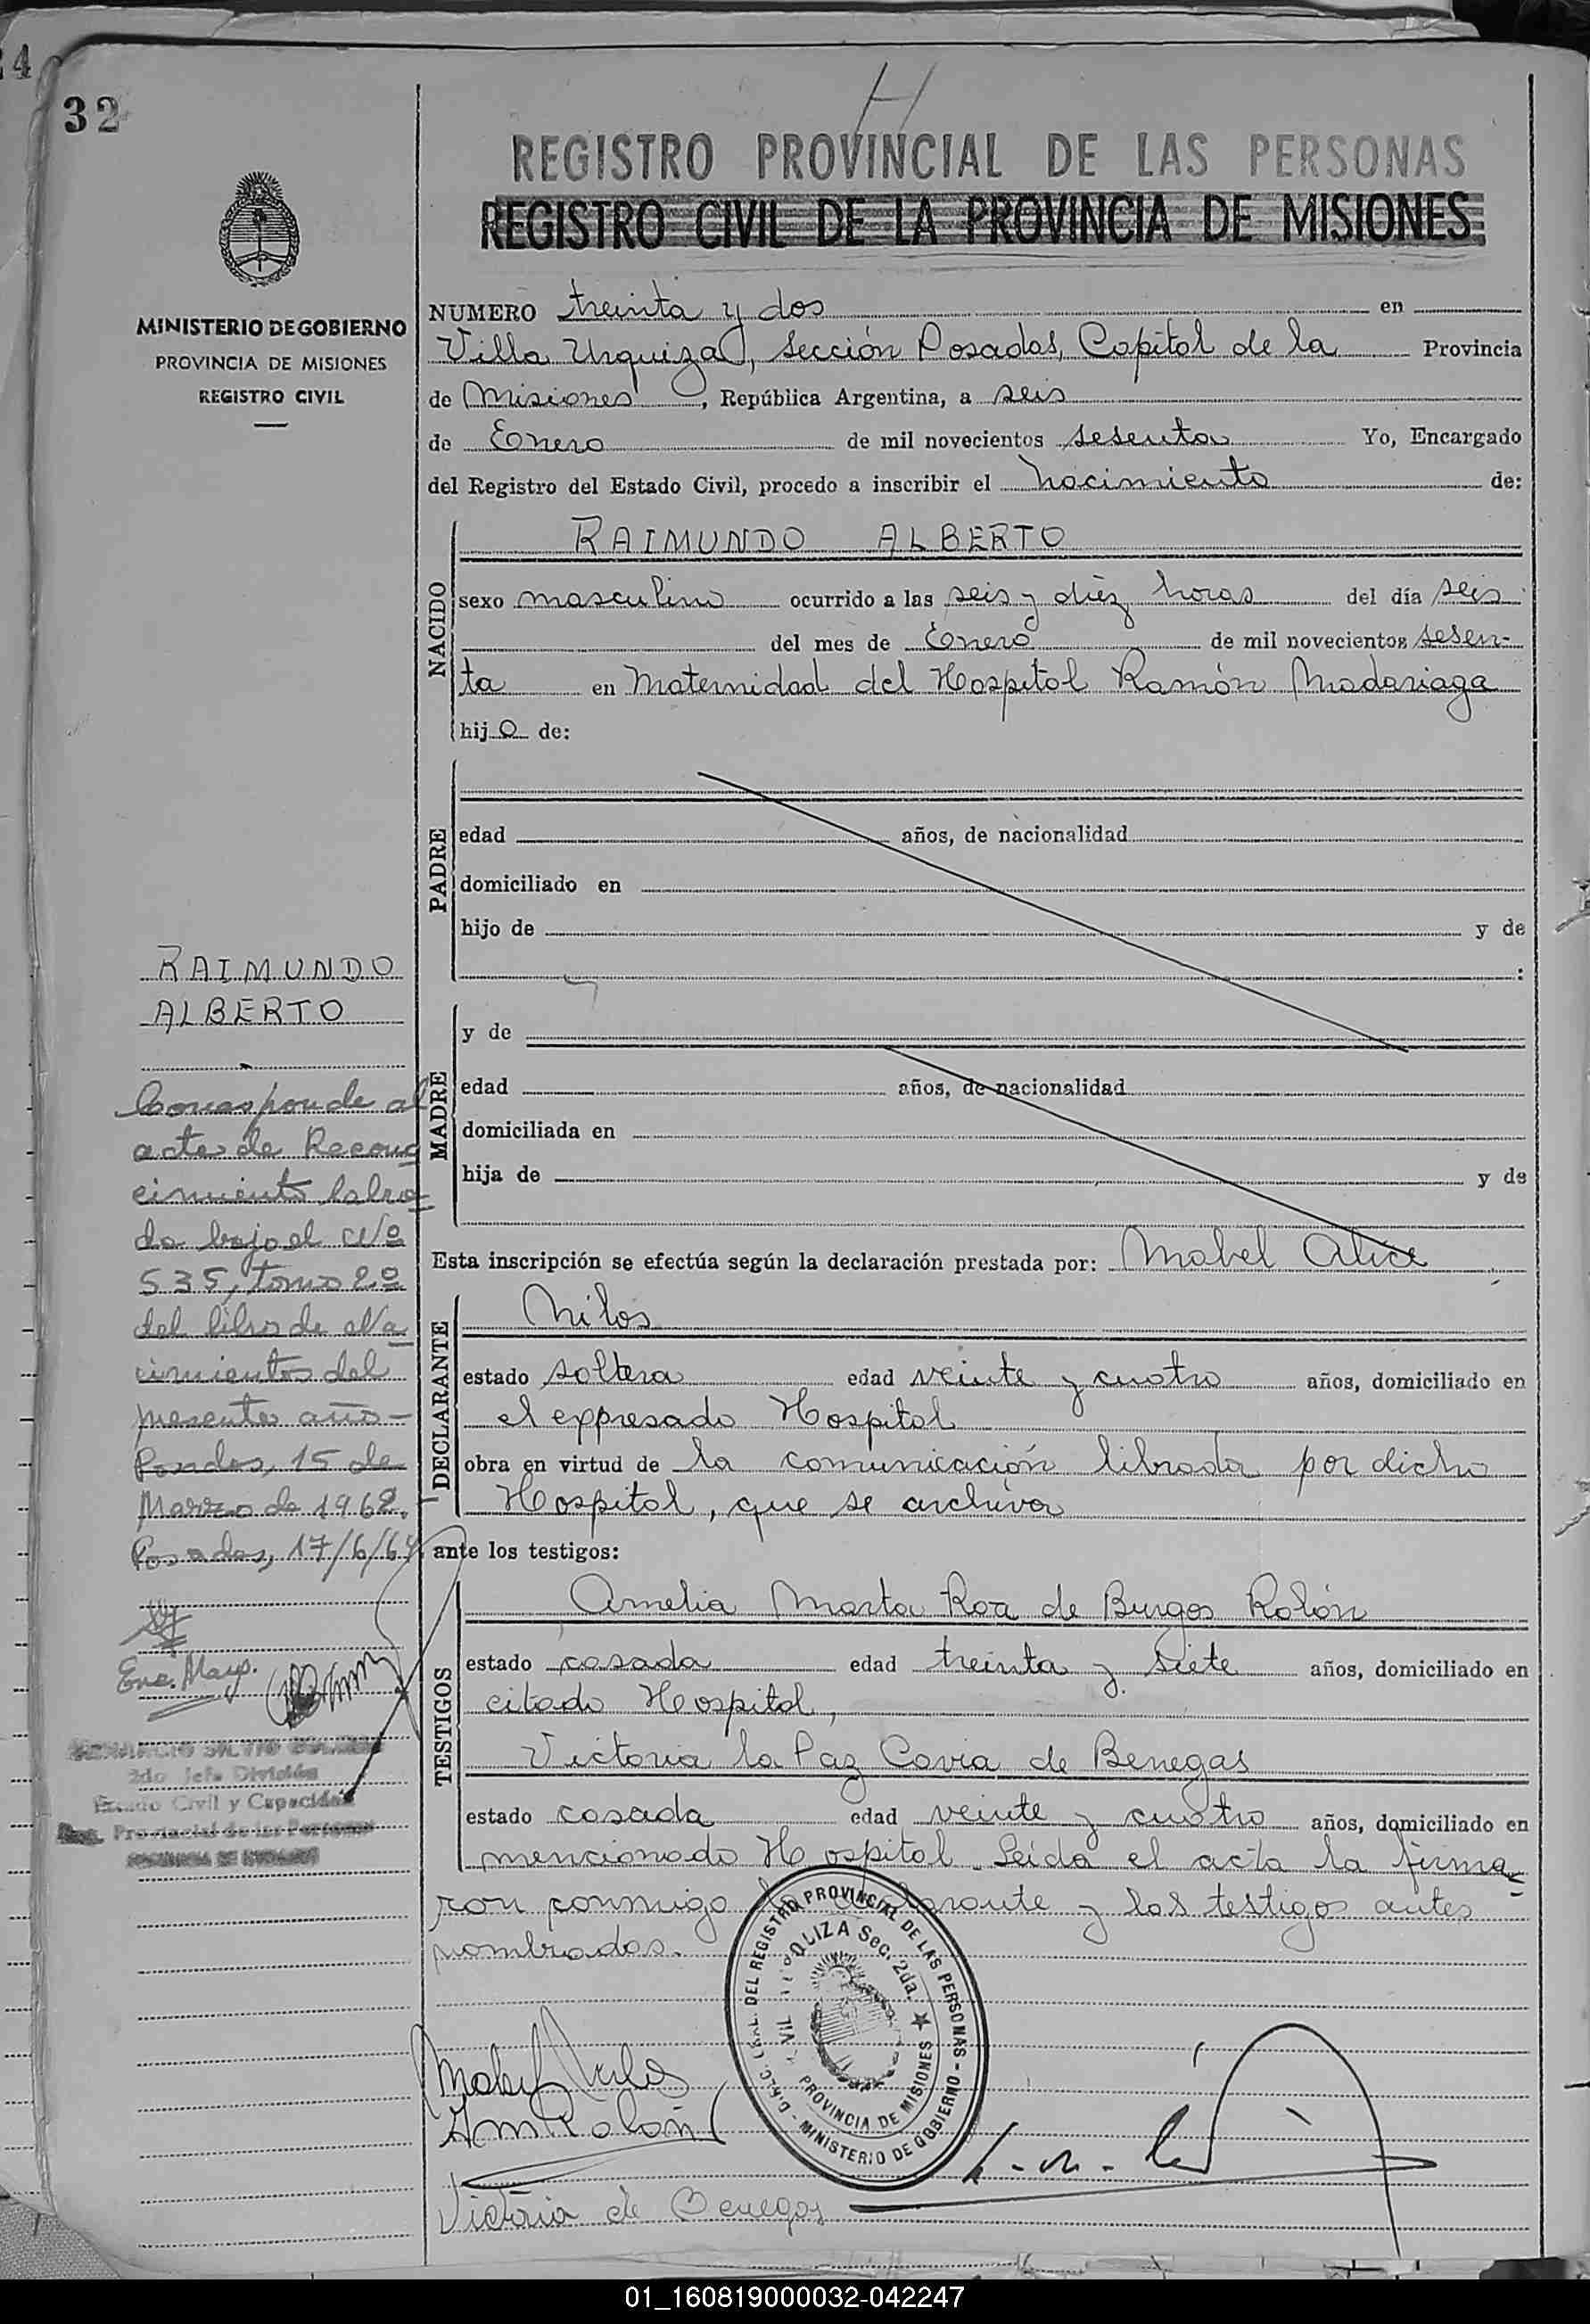 4
32
H
REGISTRO PROVINCIAL DE LAS PERSONAS
REGISTRO CIVIL DE LA PROVINCIA DE MISIONES
MINISTERIO DE GOBIERNO
PROVINCIA DE MISIONES
REGISTRO CIVIL
NUMERO treinta y dos en
Villa Urquiza, Sección Posadas, Capital de la Provincia
de Misiones, República Argentina, a seis
de Enero de mil novecientos sesenta Yo, Encargado
del Registro del Estado Civil, procedo a inscribir el nacimiento de:
NACIDO
RAIMUNDO ALBERTO
sexo masculino ocurrido a las seis y diez horas del día seis
del mes de Enero de mil novecientos sesen-
ta en Maternidad del Hospital Ramón Madariaga
hijo de:
PADRE
edad años, de nacionalidad
domiciliado en
hijo de y de
:
MADRE
y de
edad años, de nacionalidad
domiciliada en
hija de y de
Esta inscripción se efectúa según la declaración prestada por: Mabel Alice
DECLARANTE
Milos
estado soltera edad veinte y cuatro años, domiciliado en
el expresado Hospital
obra en virtud de la comunicación librada por dicho
Hospital, que se archiva
ante los testigos:
TESTIGOS
Amelia Marta Roa de Burgos Rolón
estado casada edad treinta y siete años, domiciliado en
citado Hospital,
Victoria la Paz Cavia de Benegas
estado casada edad veinte y cuatro años, domiciliado en
mencionado Hospital. Leída el acta la firma-
ron conmigo la declarante y los testigos antes
nombrados.
RAIMUNDO
ALBERTO
Corresponde al
acta de Recono
cimiento labra
da bajo el Nº
535, tomo 2º
del libro de Na
cimientos del
presente año-
Posadas, 15 de
Marzo de 1962.
Posadas, 17/6/64
Enc. Mayo.
2do Jefe División
Estado Civil y Capacidad
Reg. Provincial de las Personas
DIREC. GRAL. DEL REGISTRO PROVINCIAL DE LAS PERSONAS - MINISTERIO DE GOBIERNO -
URQUIZA Sec. 2da. ★
PROVINCIA DE MISIONES
Mabel Milos
AMRolón
Victoria de Benegas
01_160819000032-042247